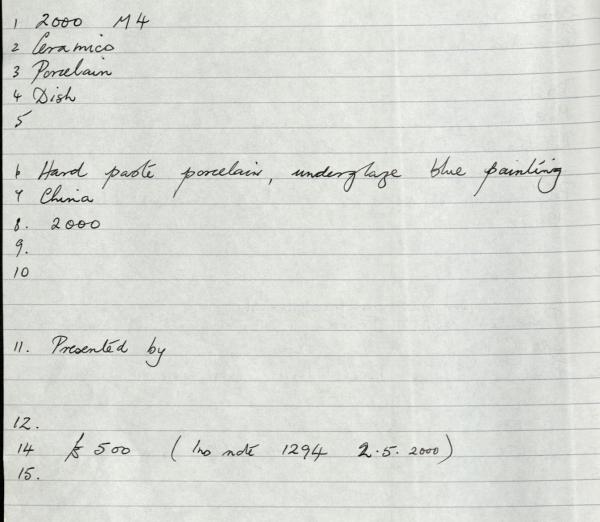 1 2000 M4
2 Ceramics
3 Porcelain
4 Dish
5
6 Hard paste porcelain, underglaze blue painting
7 China
8. 2000
9.
10
11. Presented by
12.
14 £ 500 (Ins note 1294 2.5.2000)
15.